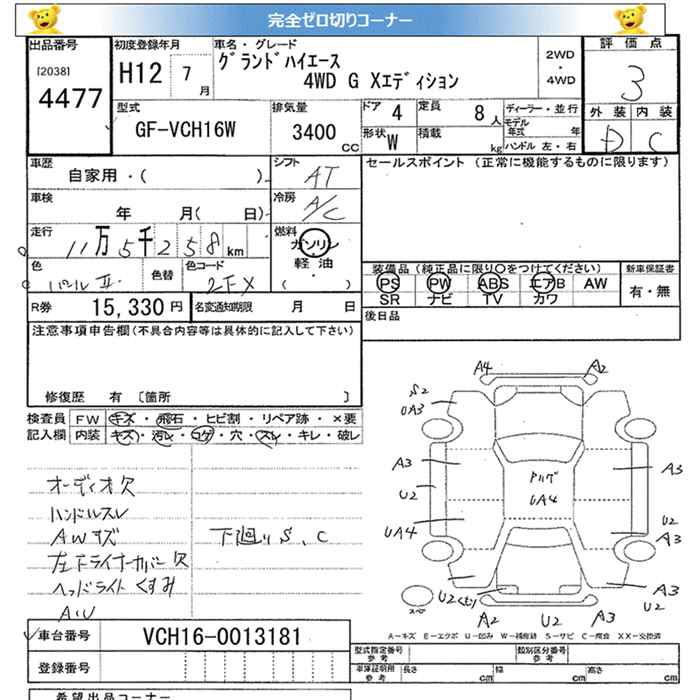 完全ゼロ切りコーナー
出品番号 初度登録年月 車名・グレード 評価点
[2038] 4477 H12 7月 グランドハイエース 4WD G Xエディション 2WD・4WD 3
型式 GF-VCH16W 排気量 3400cc ドア 4 定員 8人 ディーラー・並行 外装 内装
形状 W 積載 kg モデル年式 年 ハンドル 左・右 D C
車歴 自家用・( ) シフト AT セールスポイント(正常に機能するものに限ります)
車検 年 月( 日) 冷房 A/C
走行 11万5千258km 燃料 ガソリン 軽油・( )
色 パールⅡ 色替 色コード 2FX
装備品(純正品に限り○をつけてください) 新車保証書
PS PW ABS エアB AW 有・無
SR ナビ TV カワ
R券 15,330円 名変通知期限 月 日 後日品
注意事項申告欄(不具合内容等は具体的に記入して下さい)
修復歴 有 〔箇所 〕
検査員 FW キズ・飛石・ヒビ割・リペア跡・×要
記入欄 内装 キズ・汚レ・コゲ・穴・スレ・キレ・破レ
オーディオ欠
ハンドルスレ
AWキズ 下廻りS、C
左下ライナーカバー欠
ヘッドライトくすみ
A・U
A4 A2
S2
UA3
A3 A3
U2 U2
UA4 A3
UA4
U2 A3
A2 U2 A3 U2
スペア
A-キズ E-エクボ U-凹み W-補修跡 S-サビ C-腐食 XX-交換済
車台番号 VCH16-0013181
登録番号
型式指定番号 参考 類別区分番号 参考
車庫証明用 参考 長さ cm 幅 cm 高さ cm
希望出品コーナー